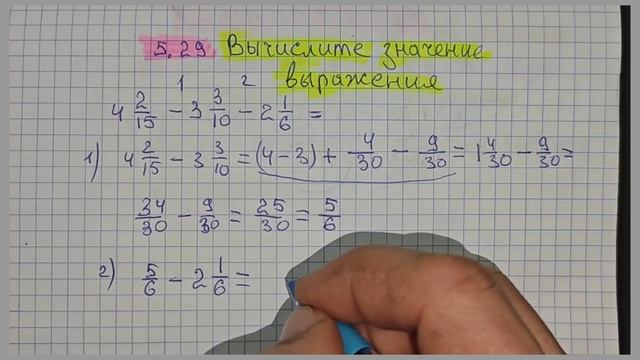 5.29 Вычислите значение
выражения
1 2
4 2/15 - 3 3/10 - 2 1/6 =
1) 4 2/15 - 3 3/10 = (4-3) + 4/30 - 9/30 = 1 4/30 - 9/30 =
34/30 - 9/30 = 25/30 = 5/6
2) 5/6 - 2 1/6 =